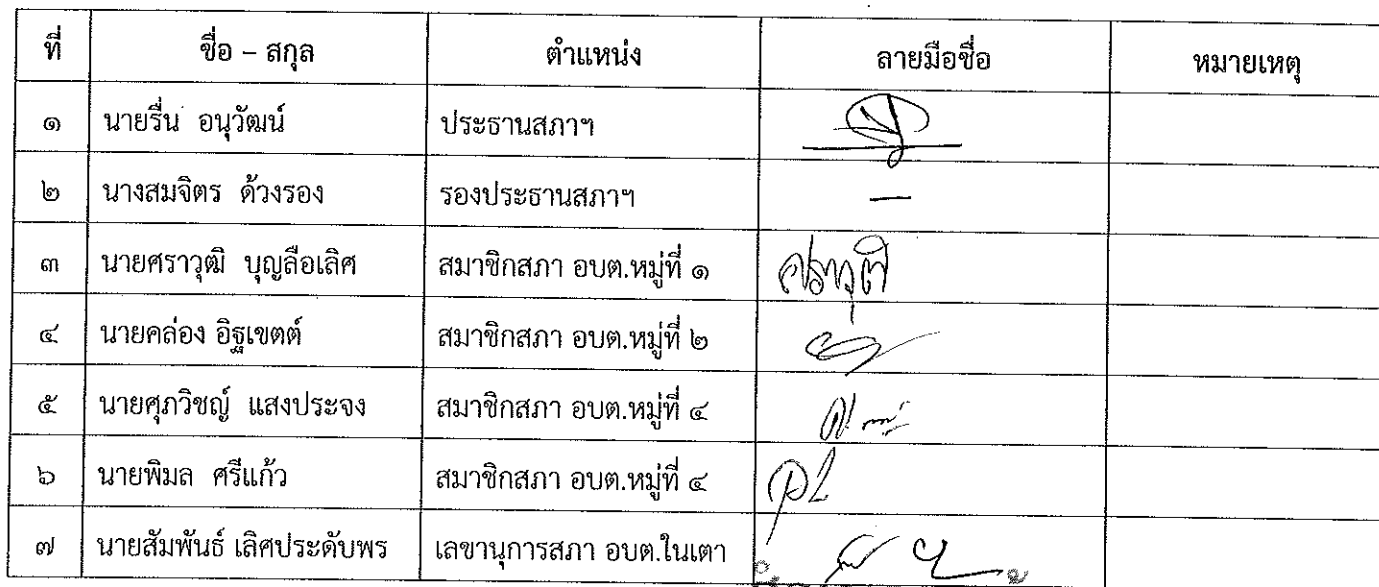 ที่ ชื่อ – สกุล ตำแหน่ง ลายมือชื่อ หมายเหตุ
๑ นายรื่น อนุวัฒน์ ประธานสภาฯ
๒ นางสมจิตร ด้วงรอง รองประธานสภาฯ —
๓ นายศราวุฒิ บุญลือเลิศ สมาชิกสภา อบต.หมู่ที่ ๑
๔ นายคล่อง อิฐเขตต์ สมาชิกสภา อบต.หมู่ที่ ๒
๕ นายศุภวิชญ์ แสงประจง สมาชิกสภา อบต.หมู่ที่ ๔
๖ นายพิมล ศรีแก้ว สมาชิกสภา อบต.หมู่ที่ ๔
๗ นายสัมพันธ์ เลิศประดับพร เลขานุการสภา อบต.ในเตา